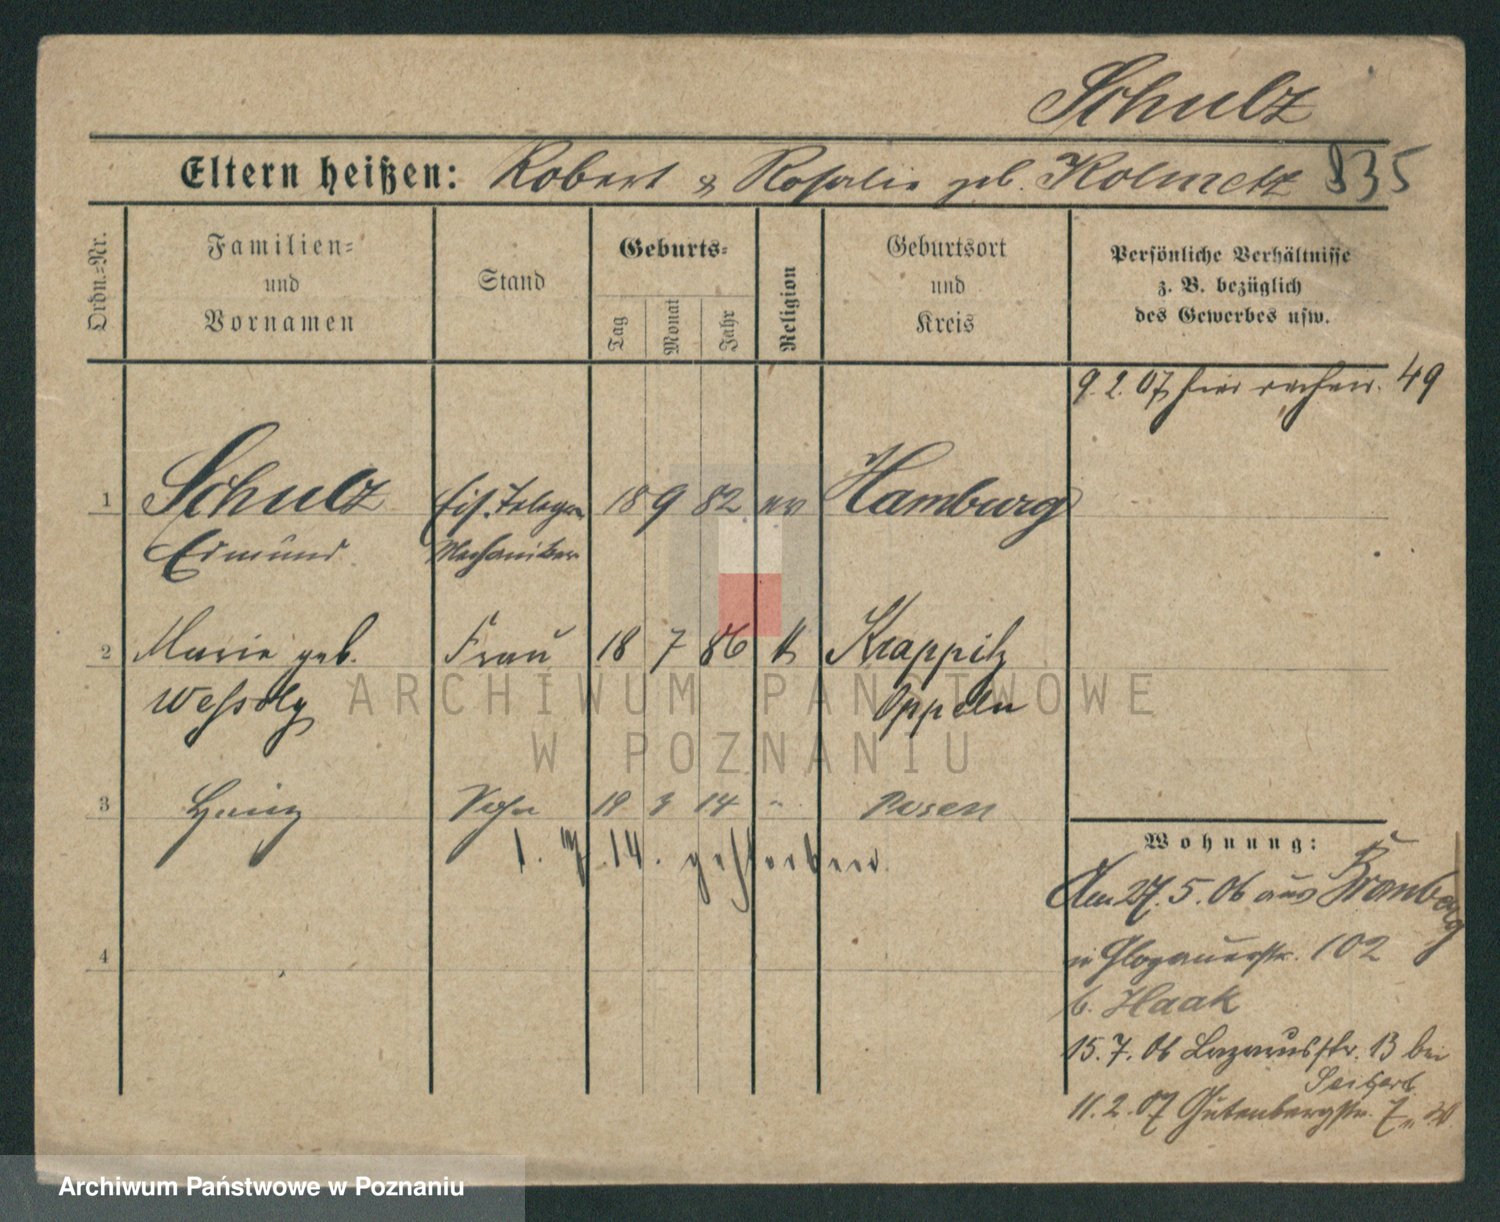 Schulz
Eltern heißen: Robert & Rosalie geb. Kolmetz 835
Ordn.=Nr.
Familien= und Vornamen
Stand
Geburts=
Tag
Monat
Jahr
Religion
Geburtsort und Kreis
Persönliche Verhältnisse z. B. bezüglich des Gewerbes usw.
9. 2. 07 hier 49
1 Schulz Eis. Telegr. 18 9 82 ev Hamburg
Edmund Mechaniker
2 Marie geb. Frau 18 7 86 k Krappitz
Wessoly Oppeln
3 Heinz Sohn 19 3 14 " Posen
1. 14. gestorben.
4
Wohnung:
Am 27. 5. 06 aus Bromberg
n Glogauerstr. 102
b. Haak
15. 7. 06 Lazarusstr. 13 bei
Seifert
11. 2. 07 Gutenbergstr. 7
ARCHIWUM PAŃSTWOWE
W POZNANIU
Archiwum Państwowe w Poznaniu